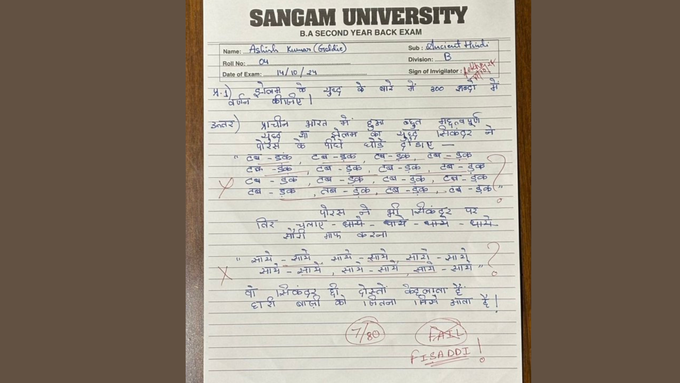 SANGAM UNIVERSITY
B.A SECOND YEAR BACK EXAM
Name: Ashish Kumar (Geddie) Sub: Ancient Hindi
Roll No: 04 Division: B
Date of Exam: 14/10/24 Sign of Invigilator:
प्र.1) झेलम के युद्ध के बारे में 300 शब्दों में
वर्णन कीजीए।
उत्तर) प्राचीन भारत में हुआ बहुत महत्वपूर्ण
युद्ध था झेलम का युद्ध सिकंदर ने
पोरस के पीछे घोड़े दौडाए —
" टब - डक, टब - डक, टब - डक, टब - डक
टब - डक, टब - डक, टब - डक, टब - डक
टब - डक, टब - डक, टब - डक, टब - डक
टब - डक, टब - डक, टब - डक, टब - डक " ?
पोरस ने भी सिकंदर पर
तिर चलाए - धाये - धाये - धाये - धाये
सॉरी माफ करना
" साये - साये, साये - साये, साये - साये
साये - साये, साये - साये, साये - साये " ?
वो सिकंदर ही दोस्तों केहलाता है
हारी बाजी को जितना जिसे आता है!
7/80
FAIL
FISADDI!